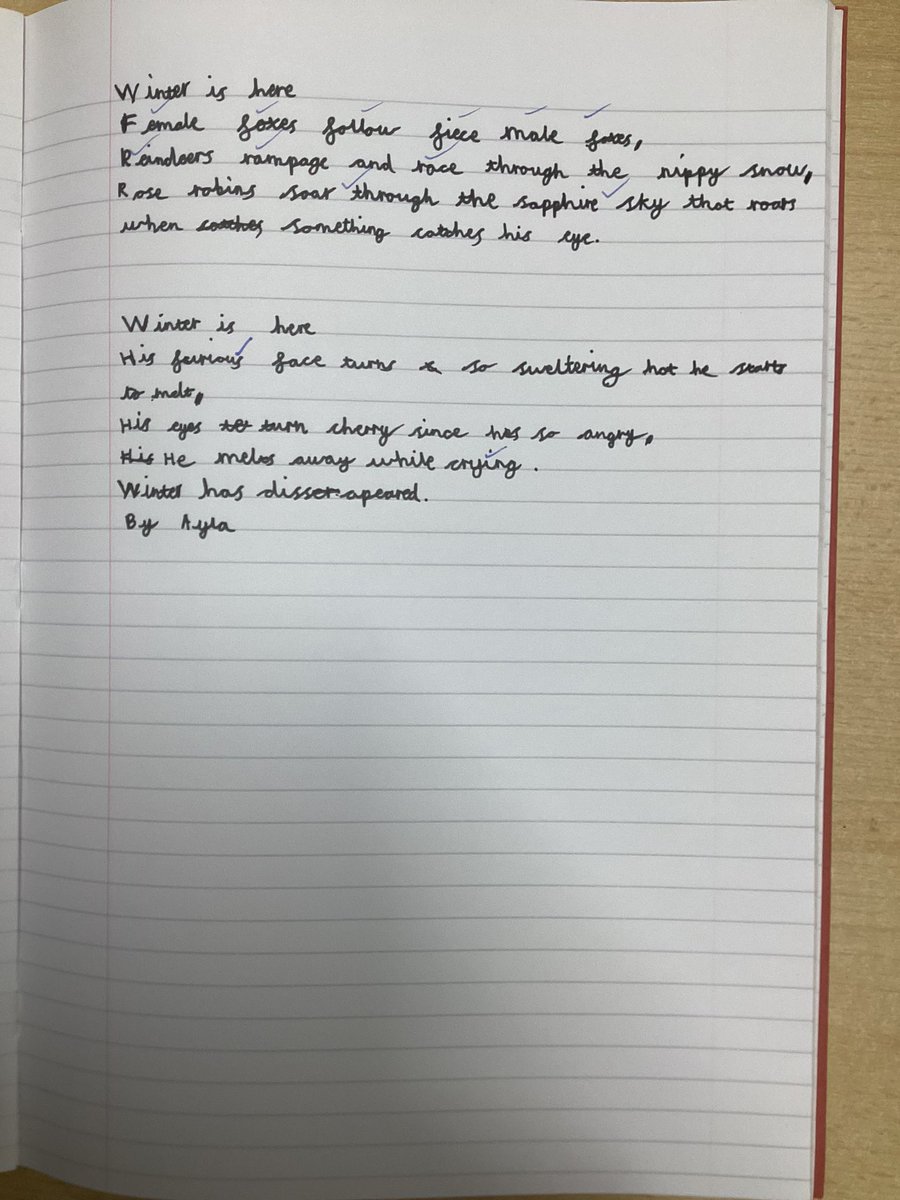 Winter is here
Female foxes follow fiece male foxes,
Reindeers rampage and race through the nippy snow,
Rose robins soar through the sapphire sky that roars
when catches something catches his eye.
Winter is here
His furious face turns so sweltering hot he starts
to melt,
His eyes turn cherry since hes so angry,
His He melts away while crying.
Winter has disserapeared.
By Ayla